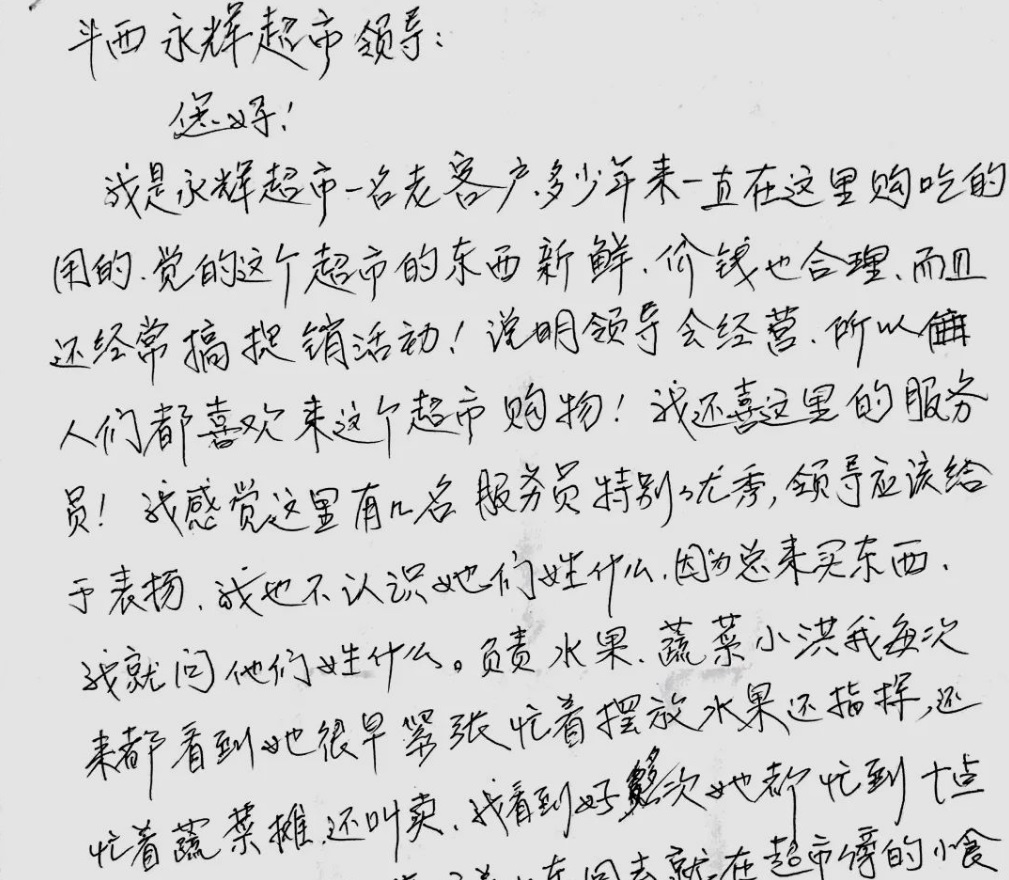 斗西永辉超市领导：
您好！
我是永辉超市一名老客户，多少年来一直在这里购吃的
用的、觉的这个超市的东西新鲜、价钱也合理、而且
还经常搞捉销活动！说明领导会经营、所以
人们都喜欢来这个超市购物！我还喜这里的服务
员！我感觉这里有几名服务员特别优秀，领导应该给
于表扬、我也不认识她们姓什么、因为总来买东西、
我就问他们姓什么。负责水果、蔬菜小洪我每次
来都看到她很早紧张忙着摆放水果还指挥，还
忙着蔬菜摊、还叫卖、我看到好多次她都忙到十点
回去就在超市旁的小食